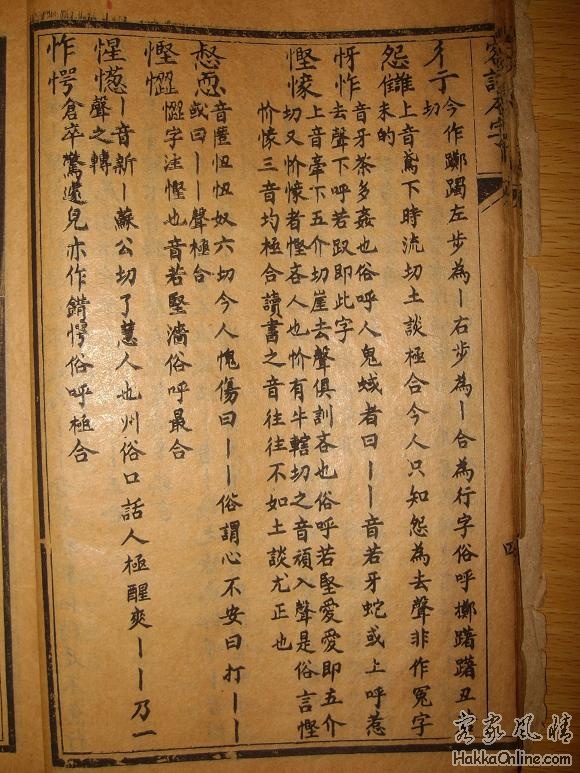 彳亍
今作躑躅左步為丨右步為丨合為行字俗呼擲躇躇丑
切
怨讎
上音鳶下時流切土談極合今人只知怨為去聲非作冤字
未的
音牙茶多姦也俗呼人鬼蜮者曰丨丨音若牙蛇或上呼惹
呀怍
去聲下呼若㕚即此字
上音牽下五介切崖去聲俱訓吝也俗呼若堅愛愛即五介
慳懞
切又忦懞者慳吝人也忦有牛轄切之音頑入聲是俗言慳
忦懞三音均極合讀書之音往往不如土談尤正也
音忸忸奴六切今人愧傷曰丨丨俗謂心不安曰打丨丨
或曰丨丨聲極合
慳㥏
字注慳也音若堅濇俗呼最合
惺憽
丨音新丨蘇公切了慧人也州俗口話人極醒爽丨丨乃一
聲之轉
怍愕
倉卒驚遽皃亦作錯愕俗呼極合
四
客家風情
HakkaOnline.com